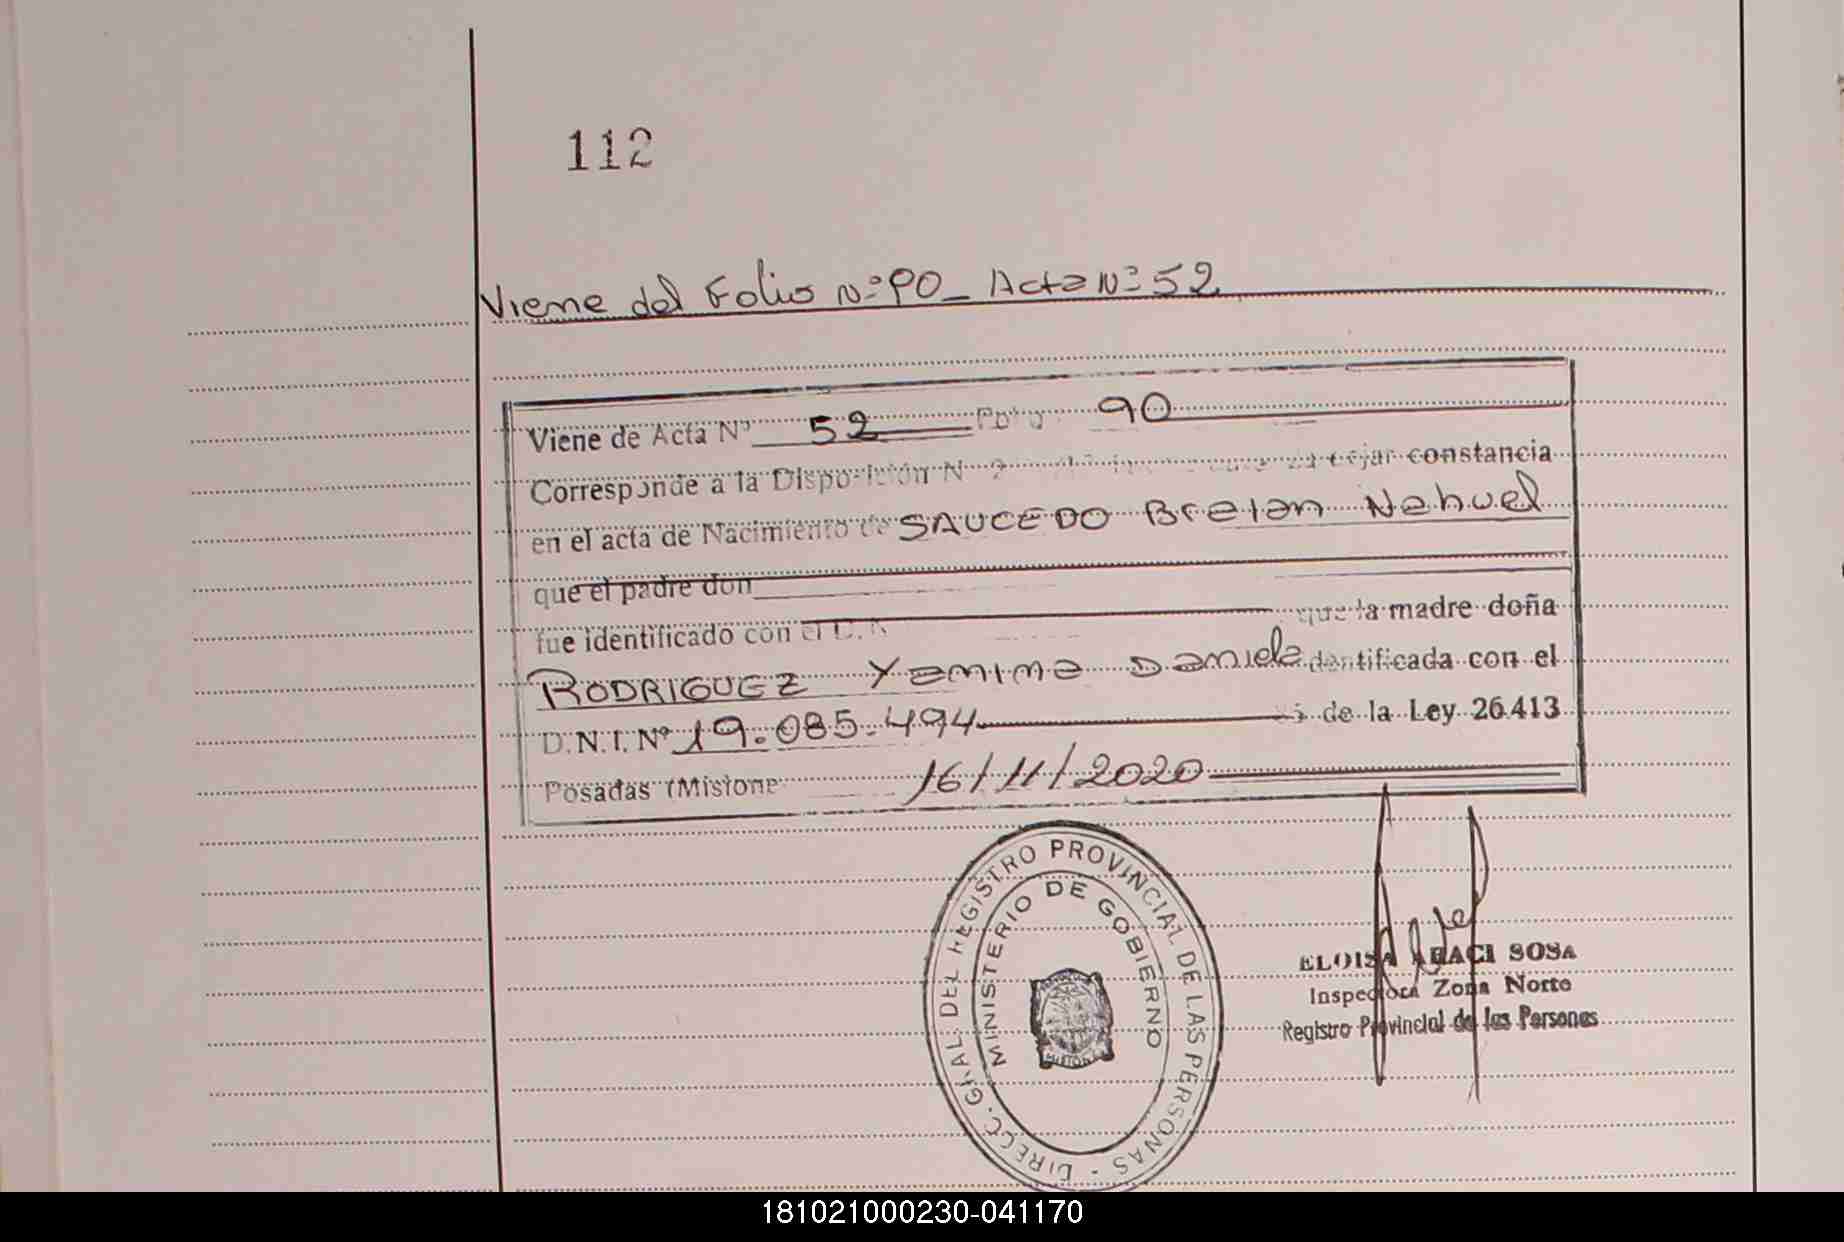 112
Viene del Folio Nº 90_ Acta Nº 52
Viene de Acta Nº 52 Folio 90
Corresponde a la Disposición N dejar constancia
en el acta de Nacimiento de SAUCEDO Braian Nahuel
que el padre don
fue identificado con el D. N que la madre doña
RODRIGUEZ Yanina Daniela identificada con el
D.N.I. Nº 19.085.494 de la Ley 26.413
Posadas (Misiones 16/11/2020
DIRECC. GRAL DEL REGISTRO PROVINCIAL DE LAS PERSONAS -
MINISTERIO DE GOBIERNO
MISIONES
ELOISA SOSA
Inspectora Zona Norte
Registro Provincial de las Personas
181021000230-041170